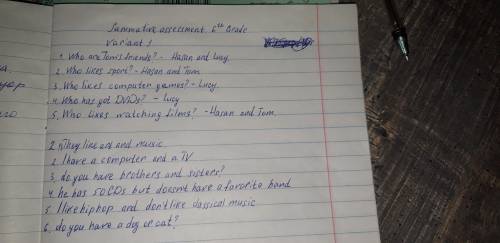 Summative assessment 6th Grade
Variant 1
1. Who are Tom's friends? - Hasan and Lucy.
2. Who likes sport? - Hasan and Tom
3. Who likes computer games? - Lucy.
4. Who has got DVDs? - Lucy
5. Who likes watching films? - Hasan and Tom.
2. They like art and music
2. I have a computer and a TV
3. do you have brothers and sisters?
4. he has 50 CDs but doesn't have a favorite band
5. I like hip hop and don't like classical music
6. do you have a dog or cat?